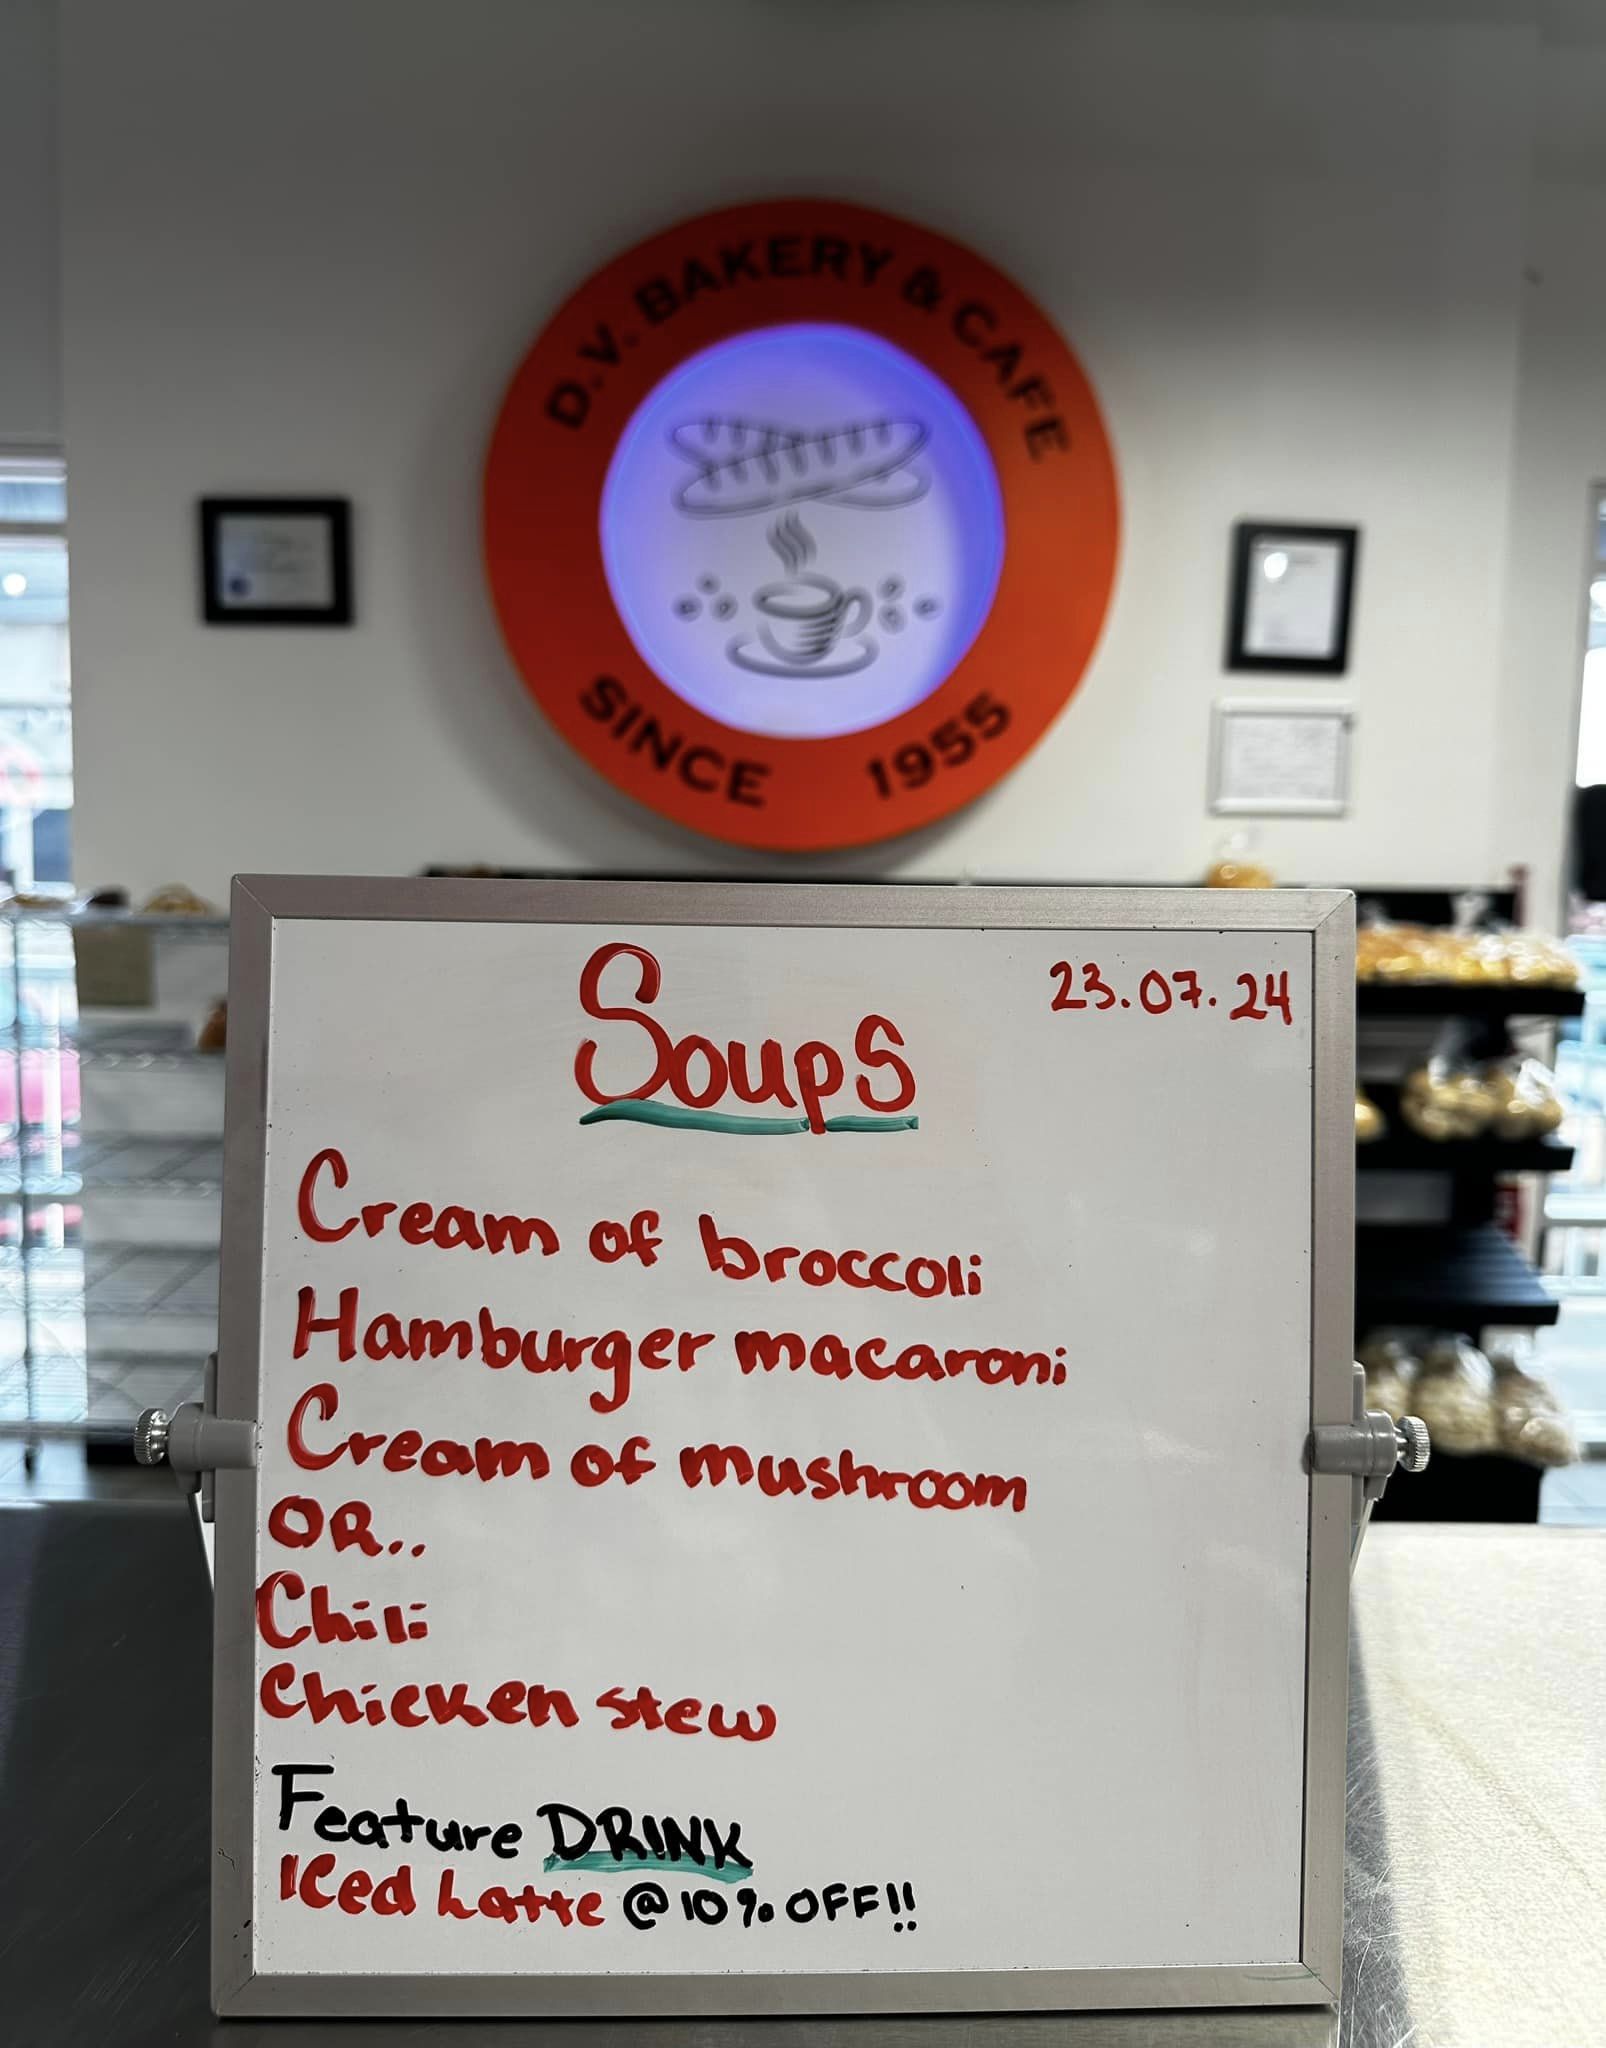 D.V. BAKERY & CAFE
SINCE 1955
Soups
23.07.24
Cream of broccoli
Hamburger macaroni
Cream of mushroom
OR..
Chili
Chicken stew
Feature DRINK
Iced Latte @ 10% OFF!!